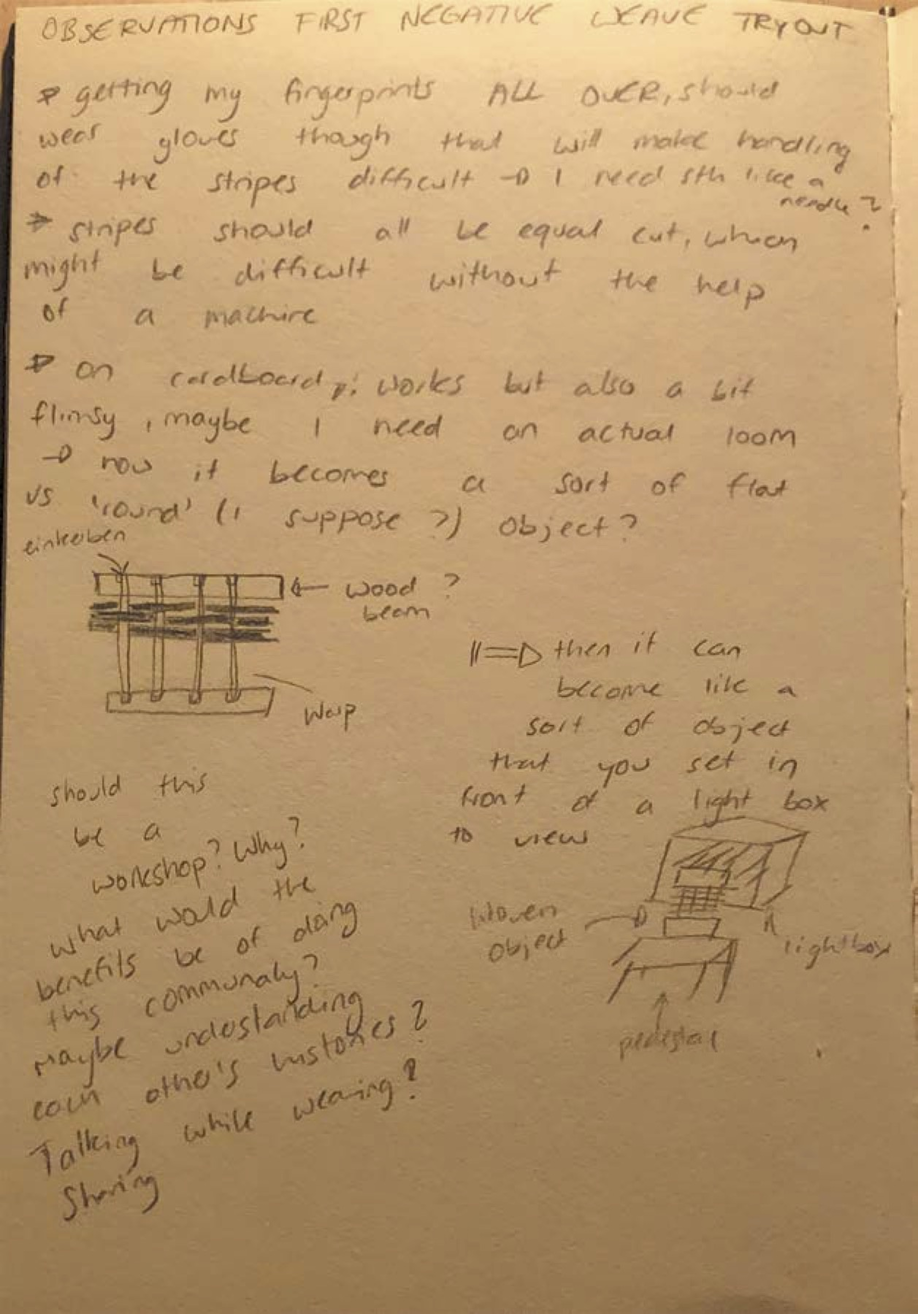 OBSERVATIONS FIRST NEGATIVE WEAVE TRYOUT
* getting my fingerprints ALL OVER, should
wear gloves though that will make handling
of the stripes difficult → I need sth like a
needle?
* stripes should all be equal cut, which
might be difficult without the help
of a machine
* on cardboard, it works but also a bit
flimsy, maybe I need an actual loom
→ now it becomes a sort of flat
vs 'round' (I suppose?) object?
einkerben
← wood ?
beam
warp
⇒ then it can
become like a
sort of object
that you set in
front of a light box
to view
woven
object
lightbox
pedestal
should this
be a
workshop? Why?
what would the
benefits be of doing
this communaly?
maybe undestanding
each other's histories?
Talking while weaving?
Sharing